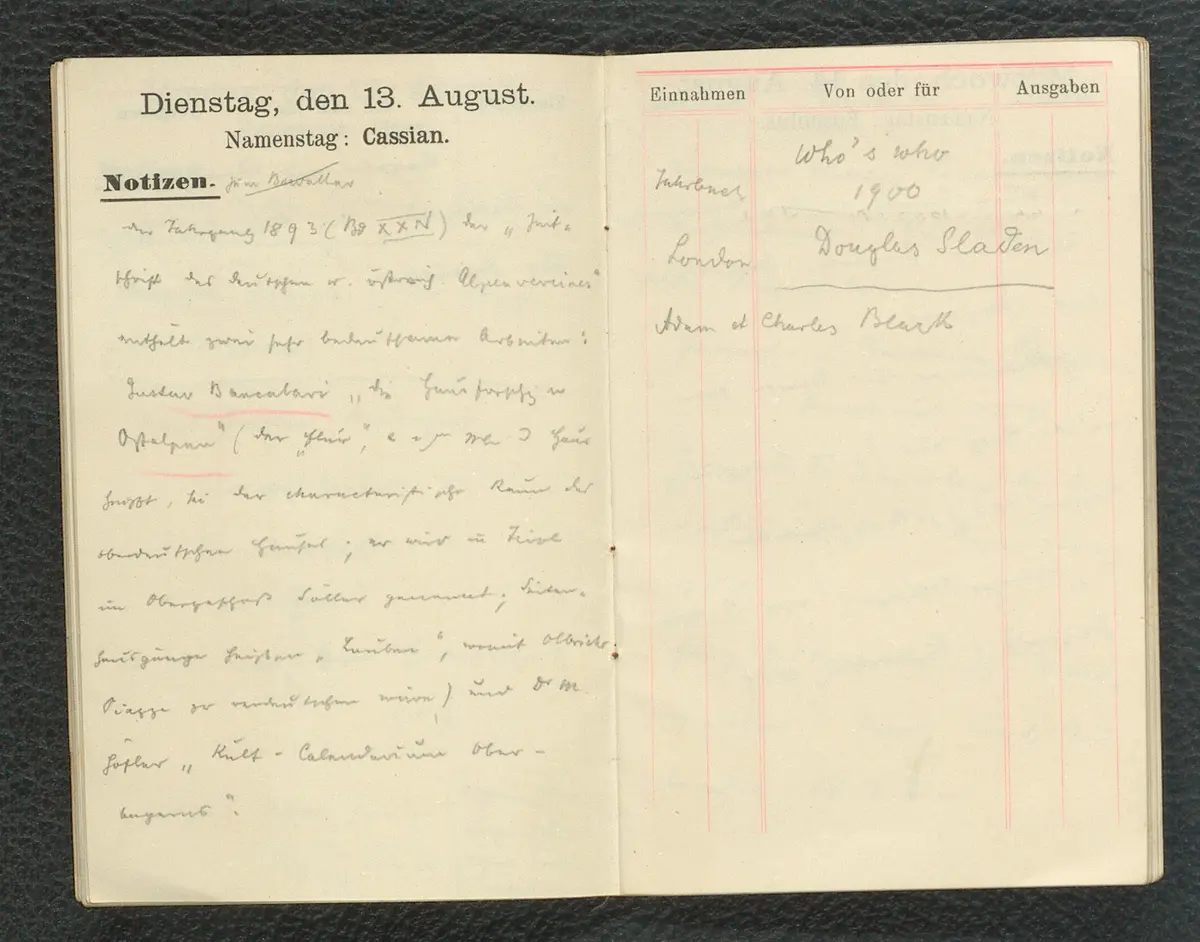 Dienstag, den 13. August.
Namenstag: Cassian.
Notizen. zum
der Jahrgang 1893 (Bd XXIV) der „Zeit-
schrift des deutschen u. östreich Alpenvereines"
enthält zwei sehr bedeutsame Arbeiten:
Gustav Bancalari „die Hausforschg
Ostalpen" (der „Flur", Haus
heißt, sei der characteristische Raum des
oberdeutschen Hauses; er wird in Tirol
im Obergeschoß Söller genannt; Seiten-
hausgänge heißen „Lauben", womit
zu verdeutschen wäre) und Dr M.
Höfler „Kult-Calendarium Ober-
bayerns".
Einnahmen Von oder für Ausgaben
Who's who
Jahrbuch 1900
London Douglas Sladen
Adam et Charles Black